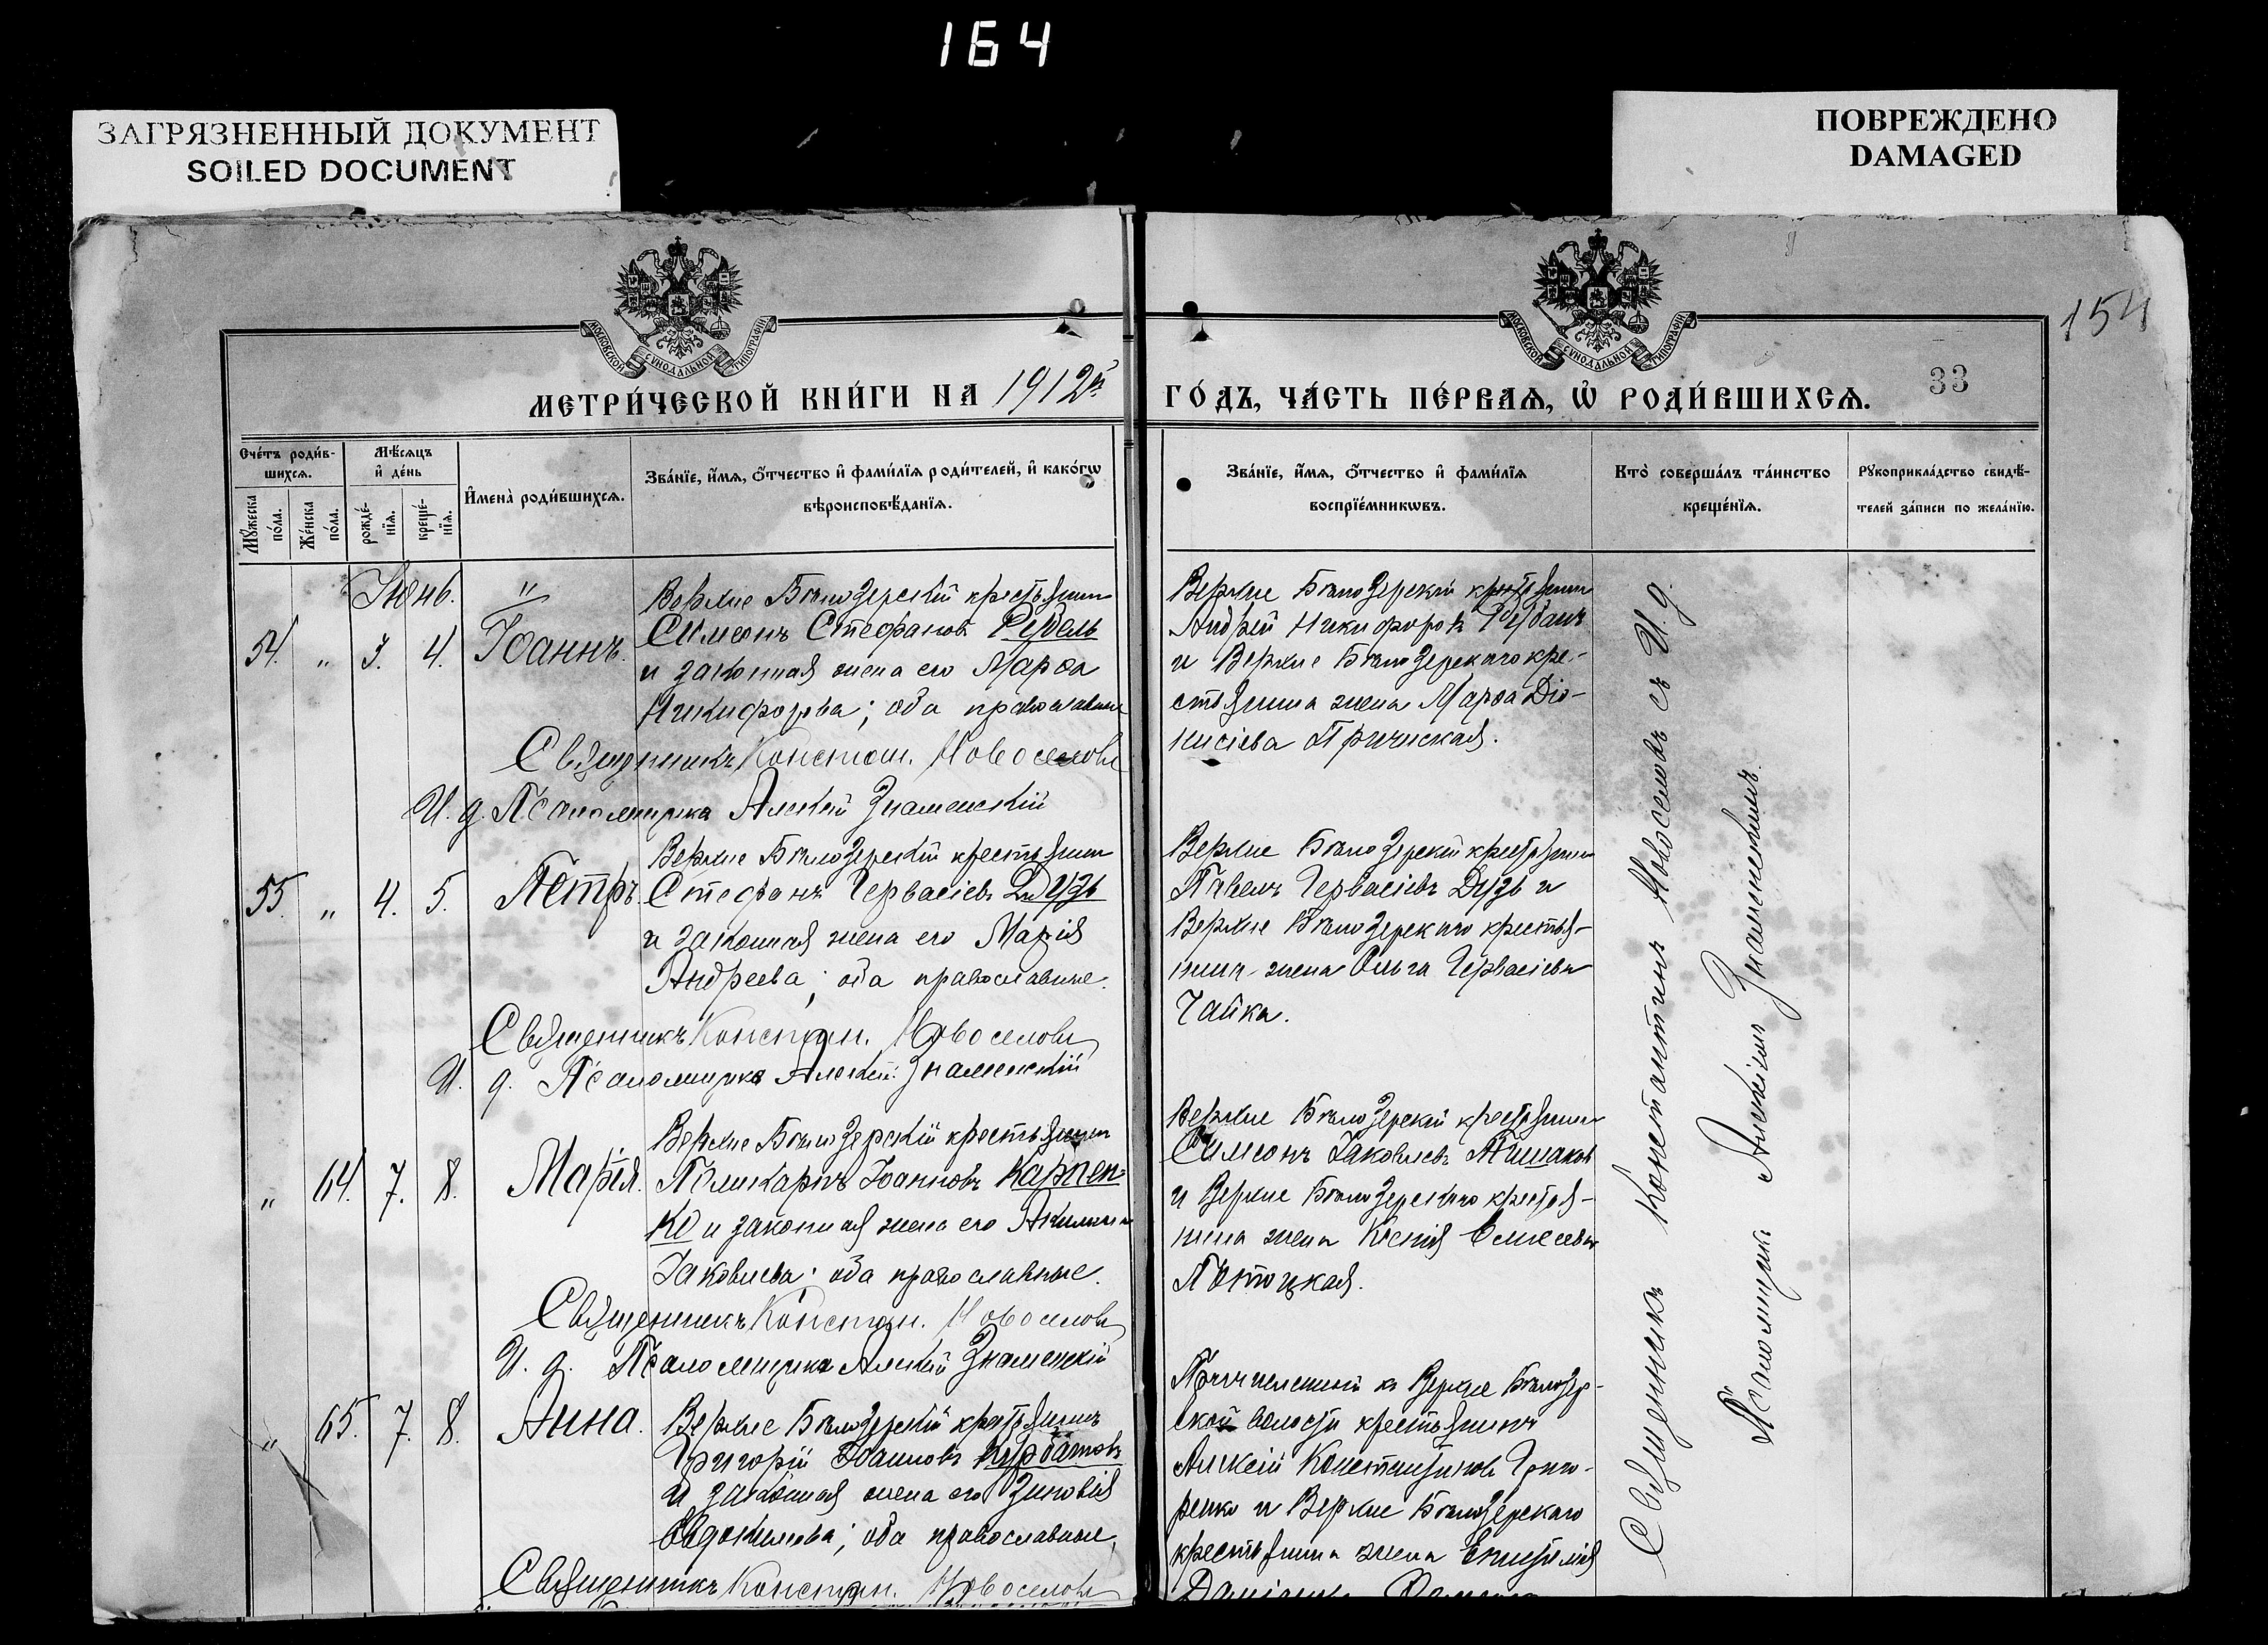 164
ЗАГРЯЗНЕННЫЙ ДОКУМЕНТ
SOILED DOCUMENT
ПОВРЕЖДЕНО
DAMAGED
МОСКОВСКОЙ СѴНОДАЛЬНОЙ ТИПОГРАФІИ
МОСКОВСКОЙ СѴНОДАЛЬНОЙ ТИПОГРАФІИ
154
МЕТРИ́ЧЕСКОЙ КНИ́ГИ НА 1912й
ГО́ДЪ, ЧА́СТЬ ПЕ́РВАѦ, Ѡ҆ РОДИ́ВШИХСѦ.
33
Сче́тъ роди́в-
шихсѧ.
Мꙋ́жеска по́ла.
Же́нска по́ла.
Мѣ́сѧцъ
и҆ де́нь
рожде́-
нїѧ.
креще́-
нїѧ.
И҆мена̀ роди́вшихсѧ.
Зва́нїе, и҆́мѧ, ѻ҆́тчество и҆ фами́лїѧ роди́телей, и҆ како́гѡ
вѣроисповѣ́данїѧ.
Зва́нїе, и҆́мѧ, ѻ҆́тчество и҆ фами́лїѧ
воспрїе́мникѡвъ.
Кто̀ соверша́лъ та́инство
креще́нїѧ.
Рꙋкоприкла́дство свидѣ́-
телей за́писи по жела́нїю.
Іюнь.
54. „ 3. 4. Іоаннъ.
Верхне Бѣлозерскій крестьянин
Симеонъ Стефановъ Рубель
и законная жена его Марѳа
Никифорова; оба православные
Священникъ Констан. Новоселовъ
И. д. Псаломщика Алексій Знаменскій
Верхне Бѣлозерскій крестьянин
Андрей Никифоровъ
и Верхне Бѣлозерскаго кре-
стьянина жена Марѳа Діо-
нисіева
55. „ 4. 5. Петръ.
Верхне Бѣлозерскій крестьянин
Стефанъ Гервасіевъ Дузь
и законная жена его Марія
Андреева; оба православные.
Священникъ Констан. Новоселовъ
И. д. Псаломщика Алексій Знаменскій
Верхне Бѣлозерскій крестьянин
Павелъ Гервасіевъ Дузь и
Верхне Бѣлозерскаго крестья-
нина жена Ольга Гервасіева
Чайка.
„ 64. 7. 8. Марія.
Верхне Бѣлозерскій крестьянин
Поликарпъ Іоанновъ Карпен-
ко и законная жена его Акилина
Іаковлева; оба православные.
Священникъ Констан. Новоселовъ
И. д. Псаломщика Алексій Знаменскій
Верхне Бѣлозерскій крестьянин
Симеонъ Іаковлевъ
и Верхне Бѣлозерскаго крестья-
нина жена Ксенія
Потоцкая.
„ 65. 7. 8. Анна.
Верхне Бѣлозерскій крестьянинъ
Григорій Іоанновъ Курбатовъ
и законная жена его Зиновія
Евдокимова; оба православные.
Священникъ Констан. Новоселовъ
Причисленный къ Верхне Бѣлозер-
ской волости крестьянинъ
Алексій Константиновъ Григо-
ренко и Верхне Бѣлозерскаго
крестьянина жена
Священникъ Константинъ Новоселовъ съ И. д.
Псаломщика Алексіемъ Знаменскимъ.